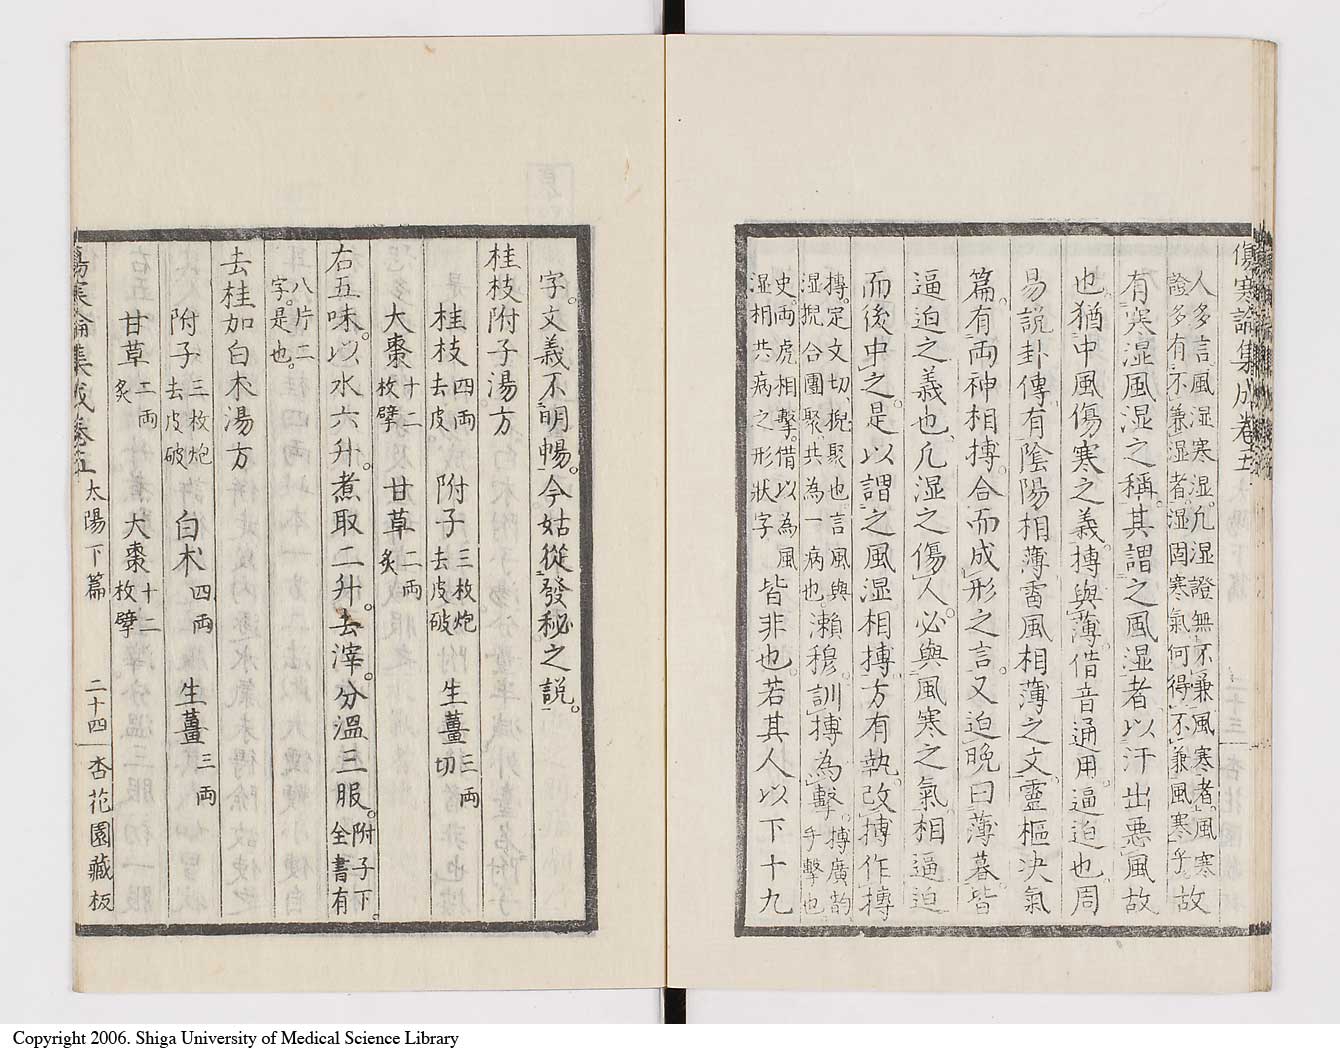 傷寒論集成卷五
人多言風湿寒湿。凡湿證無不兼風寒者。風寒
證多有不兼湿者。湿固寒氣何得不兼風寒乎。故
有寒湿風湿之稱。其謂之風湿者以汗出悪風故
也。猶中風傷寒之義。摶與薄。借音通用。逼迫也。周
易說卦傳有陰陽相薄雷風相薄之文。靈樞決氣
篇。有両神相摶。合而成形之言。又迫晩曰薄暮。皆
逼迫之義也。凡湿之傷人。必與風寒之氣相逼迫
而後中之。是以謂之風湿相摶。方有執。改摶作摶
摶。㝎文切。捖聚也。言風與
湿捖合團聚。共為一病也。瀬穆訓摶為擊。摶廣韵
手擊也
史。両虎相擊。借以為風
湿相共病之形狀字
皆非也。若其人以下十九
字。文義不明暢。今姑從發秘之説。
桂枝附子湯方
桂枝 四両
去皮 附子 三枚炮
去皮破 生薑 三両
切
大棗 十二
枚擘 甘草 二両
炙
右五味。以水六升。煮取二升。去滓。分溫三服。附子下。
全書有
八片二
字。是也。
去桂加白朮湯方
附子 三枚炮
去皮破 白朮 四両 生薑 三両
甘草 二両
炙 大棗 十二
枚擘
傷寒論集成卷五 太陽下篇 二十四 杏花園藏板
Copyright 2006. Shiga University of Medical Science Library